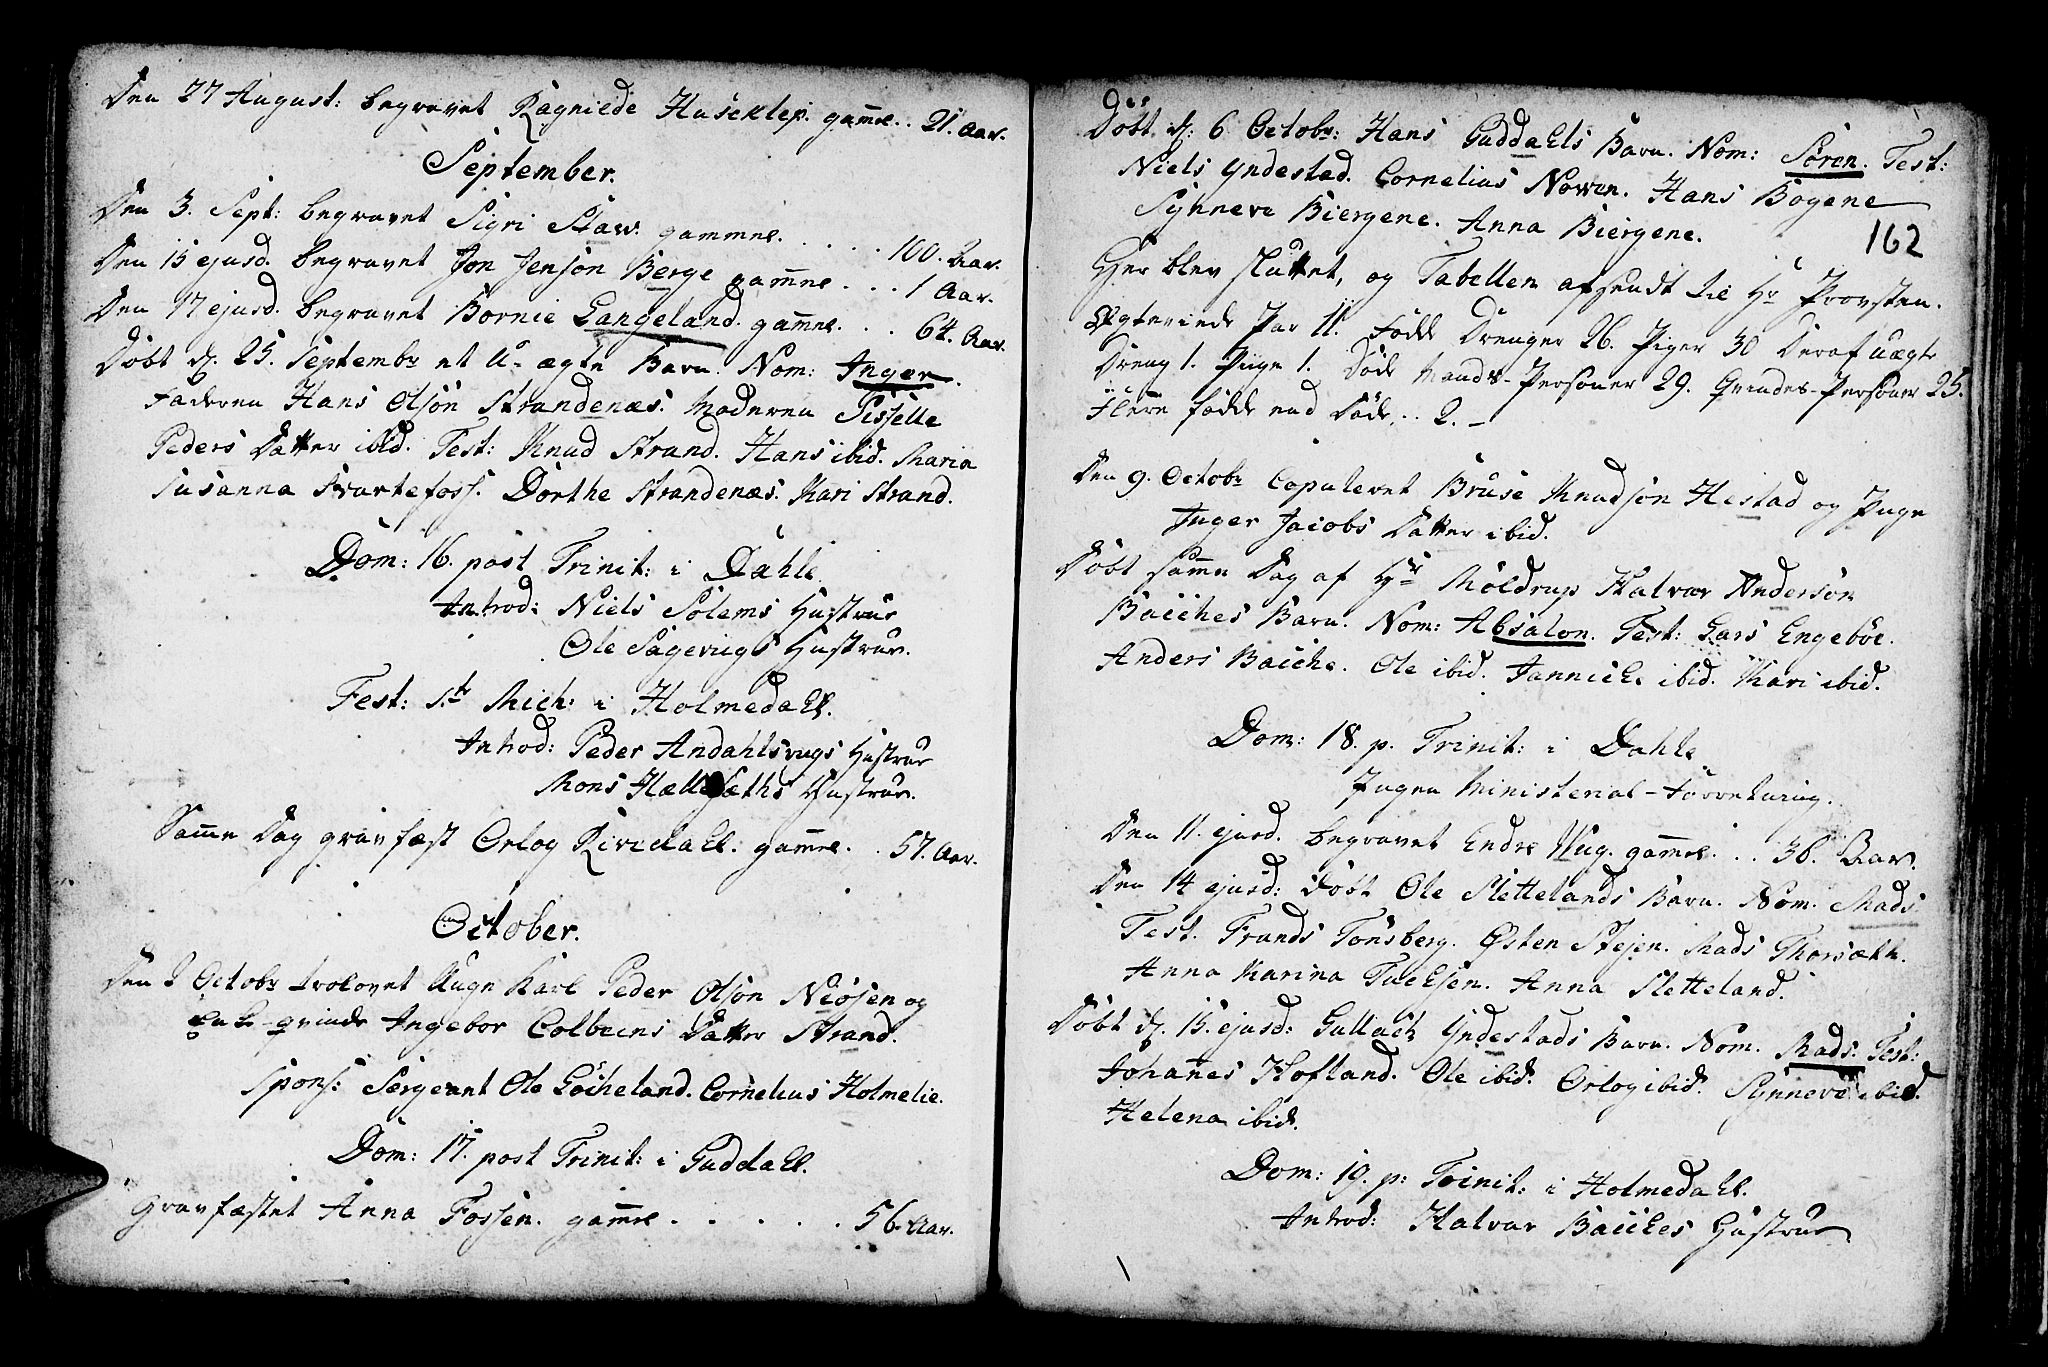 Den 27 August: begravet Ragniede Huseklep. gam̄el.. 21. Aar.
September.
Den 3. Sept: begravet Sigri Staw. gammel. . . . . 100. Aar.
Den 15 ejusd. begravet Jon Jensøn Berge gam̄el . . . 1 Aar.
Den 17 ejusd. begravet Bornie Langeland. gam̄el. . . 64. Aar.
Døbt d. 25. Septembr et U-ægte Barn. Nom: Inger.
Faderen Hans Olsøn Strandenæs. Moderen Sisselle
Peders Datter ibid. Test: Knud Strand. Hans ibid. Maria
Susanna Svartefoss. Dorthe Strandenæs. Kari Strand.
Dom: 16. post Trinit: i Dahle
Introd: Niels Solems Hustrue
Ole Sagevigs Hustrue.
Fest: St Mich: i Holmedahl.
Introd: Peder Andahlsvigs Hustrue
Mons Hællesæths Hustrue.
Sam̄e Dag gravfæst Orlog Rivedahl. gam̄el. . 57. Aar.
October.
Den 2 Octobr trolovet Unge Karl Peder Olsøn Niøsen og
Enke-qvinde Ingebor Colbeens Datter Strand.
Spons: Sergeant Ole Løcheland. Cornelius Holmelie.
Dom: 17. post Trinit: i Guddahl.
Gravfæstet Anna Fossen. gam̄el . . . . . 56. Aar.
Døbt d: 6 Octobr: Hans Guddahls Barn. Nom: Søren. Test:
Niels Yndestad. Cornelius Noven. Hans Bogene
Synneve Biergene. Anna Biergene.
162
Her blev sluttet, og Tabellen afsendt til Hr Provsten.
Ægteviede Par 11. Fødde Drenger 26. Piger 30 Deraf uægte
Dreng 1. Piige 1. Døde Mands-Personer 29. Qvindes-Personer 25.
Flere fødde end Døde... 2. -
Den 9. Octobr Copuleret Bruse Knudsøn Hestad og Pige
Inger Jacobs Datter ibid.
Døbt sam̄e Dag af Hr Møldrup Halvor Andersøn
Bacches Barn. Nom: Absalon. Test: Lars Engebøe.
Anders Bacche. Ole ibid. Jannicke ibid. Kari ibid.
Dom: 18. p. Trinit: i Dahle.
Ingen Ministerial-Forretning.
Den 11. ejusd. begravet Endre Hug. gam̄el. . . 36. Aar.
Den 14 ejusd: Døbt Ole Slettelands Barn. Nom. Mads
Test. Frands Tønsberg. Østen Stejen. Mads Thorsæth.
Anna Karina Tuchsen. Anna Sletteland.
Døbt d. 15. ejusd: Gullach Yndestads Barn. Nom. Mads: Test:
Johan̄es Hofland. Ole ibid. Orlog ibid. Synneve ibid.
Helena ibid.
Dom: 19. p: Trinit: i Holmedahl.
Introd: Halvor Bacches Hustrue